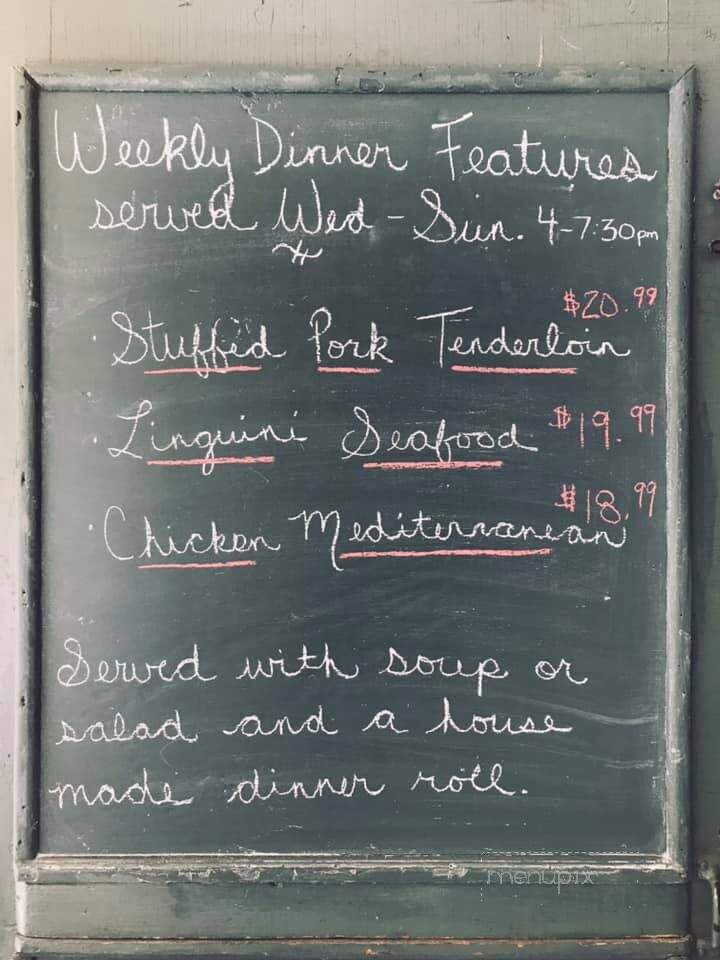 Weekly Dinner Features
served Wed - Sun. 4-7:30pm
$20.99
· Stuffed Pork Tenderloin
· Linguini Seafood $19.99
$18.99
· Chicken Mediterranean
Served with soup or
salad and a house
made dinner roll.
menupix